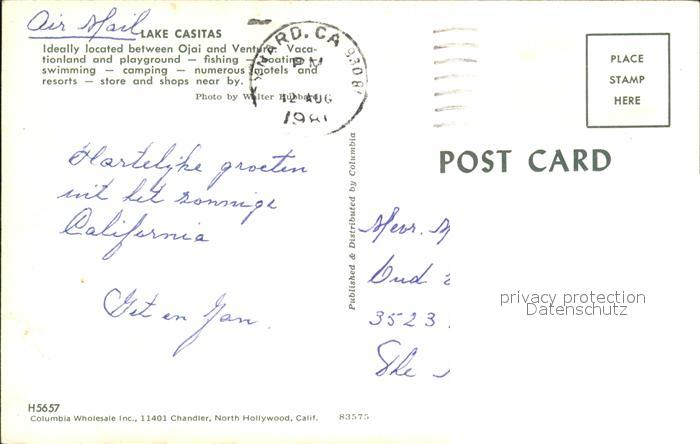 Air Mail
LAKE CASITAS
Ideally located between Ojai and Ventura. Vaca-
tionland and playground — fishing — boating —
swimming — camping — numerous motels and
resorts — store and shops near by.
Photo by Walter Hubbard
OXNARD, CA 930
PM
12 AUG
1981
PLACE
STAMP
HERE
POST CARD
Hartelijke groeten
uit het zonnige
California
Get en Jan.
Published & Distributed by Columbia
Mevr. M
Oud
3523
The
privacy protection
Datenschutz
H5657
Columbia Wholesale Inc., 11401 Chandler, North Hollywood, Calif. 83575